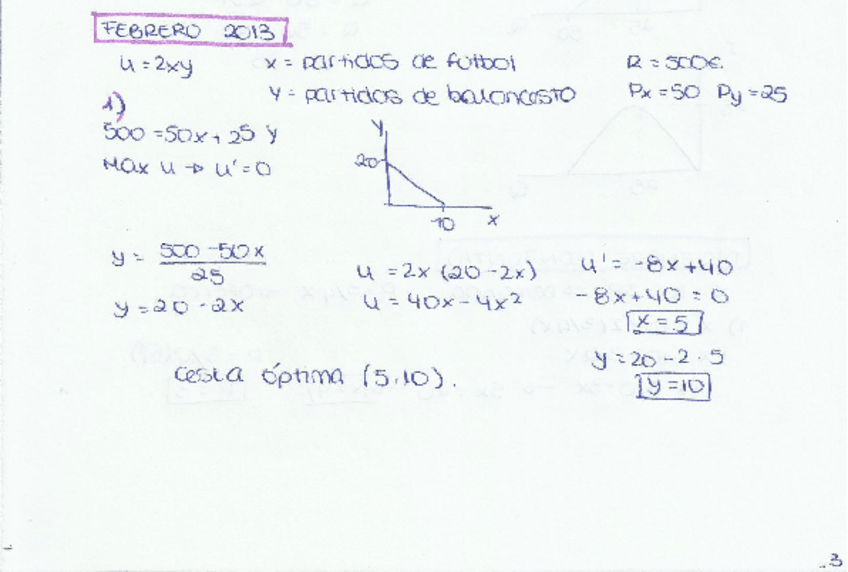 FEBRERO 2013
u = 2xy x = partidos de futbol R = 500€
y = partidos de baloncesto Px = 50 Py = 25
1)
500 = 50x + 25 y
Max u → u' = 0
y
20
10 x
y = 500 - 50x / 25
y = 20 - 2x
u = 2x (20 - 2x)
u = 40x - 4x²
u' = -8x + 40
-8x + 40 = 0
x = 5
y = 20 - 2 · 5
y = 10
cesta óptima (5,10).
3